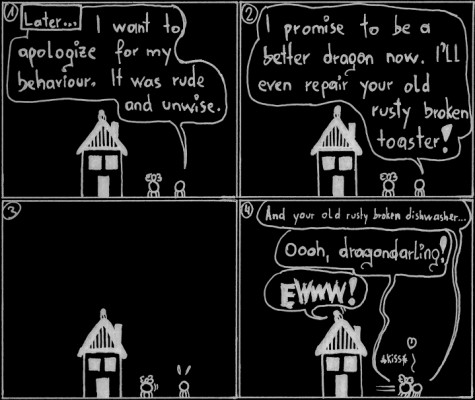 1
Later...
I want to
apologize for my
behaviour. It was rude
and unwise.
2
I promise to be a
better dragon now. I'll
even repair your old
rusty broken
toaster!
3
4
And your old rusty broken dishwasher...
Oooh, dragondarling!
EWWW!
*kiss*